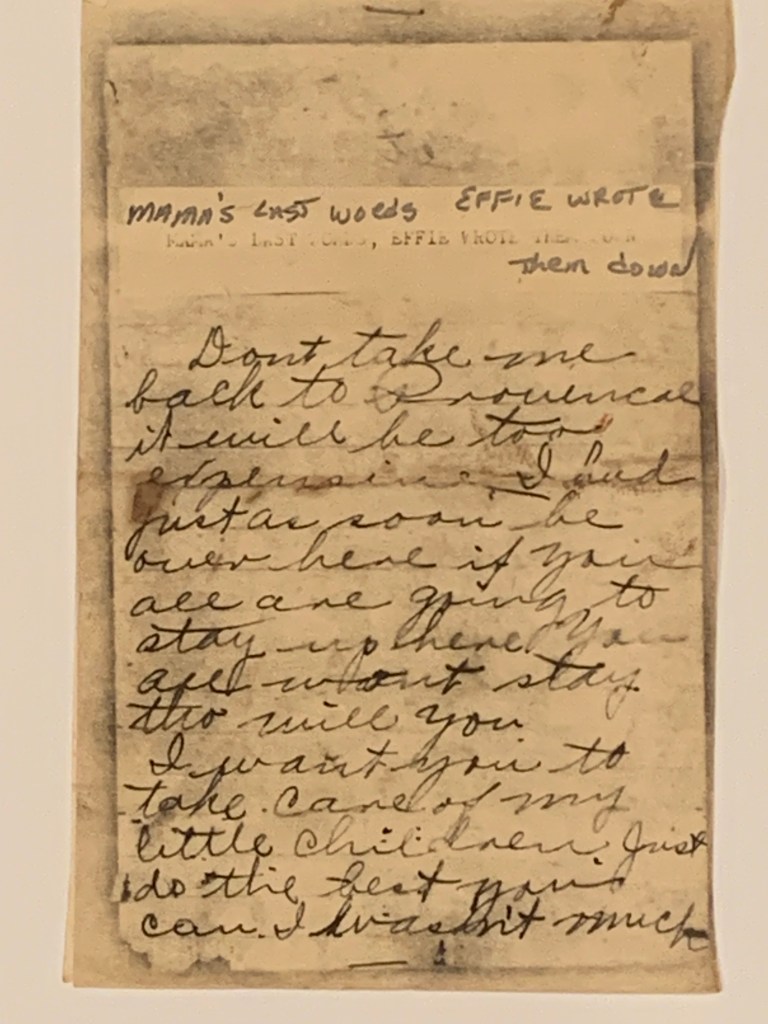 MAMA'S LAST WORDS EFFIE WROTE
MAMA'S LAST WORDS, EFFIE WROTE THEM DOWN
Them down
Dont take me
back to Provencal
it will be too
expensive I had
just as soon be
over here if you
all are going to
stay up here You
all wont stay
tho will you
I want you to
take care of my
little children Just
do the best you
can. I wasn't much